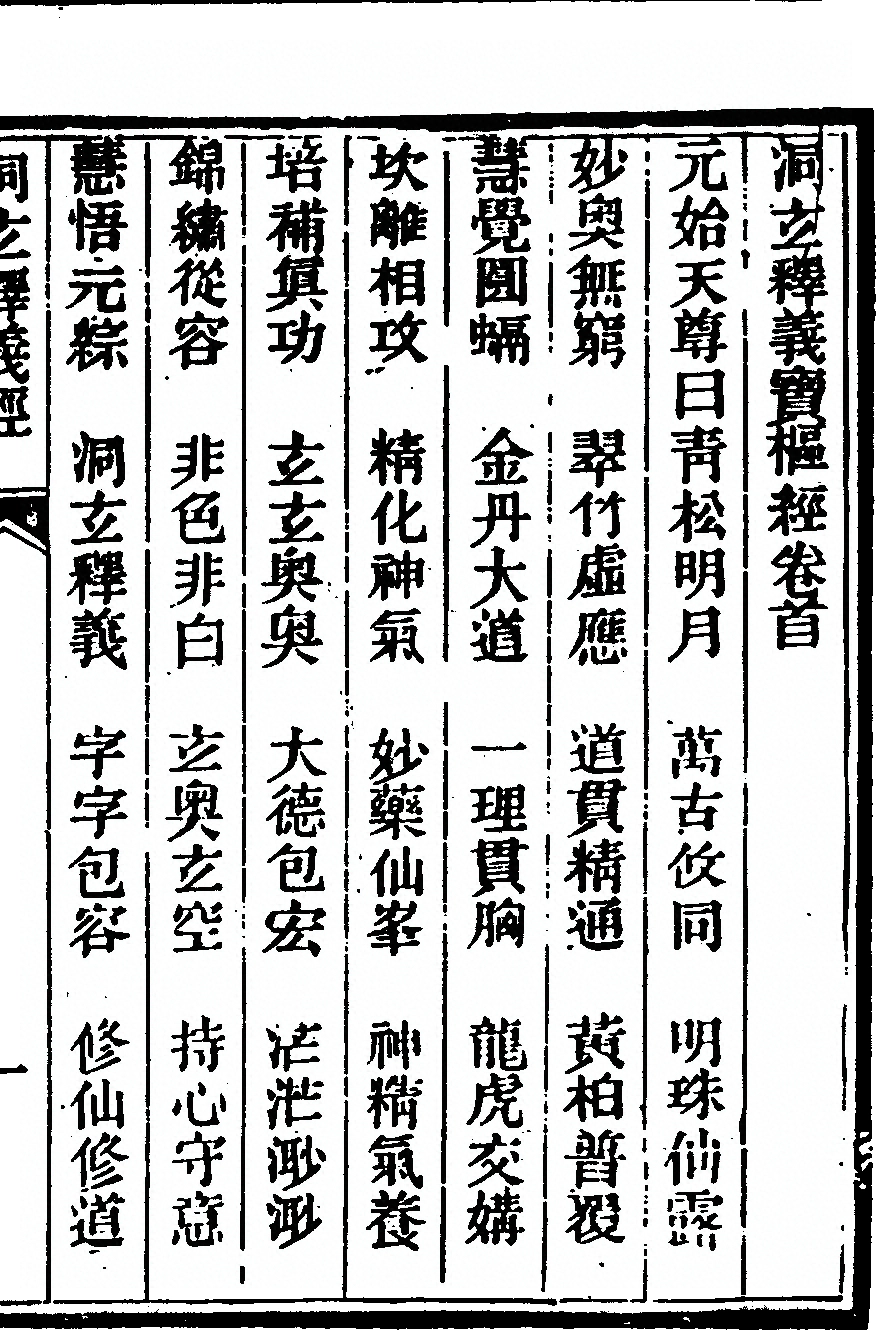 洞玄釋義寶樞經卷首
元始天尊曰靑松明月　萬古攸同　明珠仙露
妙奧無窮　翠竹虛應　道貫精通　黃柏普叕
慧覺圓蝸　金丹大道　一理貫胸　龍虎交媾
坎離相攻　精化神氣　妙藥仙峯　神精氣養
培補眞功　玄玄奧奧　大德包宏　茫茫渺渺
錦繡從容　非色非白　玄奧玄空　持心守意
慧悟元綜　洞玄釋義　字字包容　修仙修道
洞玄釋義經
一